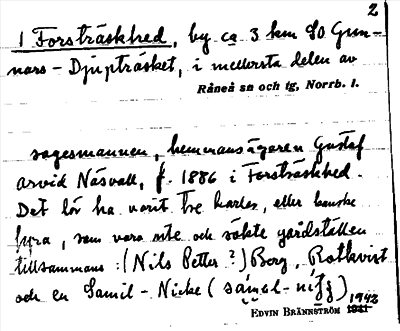 2
1 Forsträskhed, by ca 3 km SO Gun-
nars-Djupträsket, i mellersta delen av
Råneå sn och tg, Norrb. l.
sagesmannen, hemmansägaren Gustaf
Arvid Näsvall, f. 1886 i Forsträskhed.
Det lör ha varit tre karlar, eller kanske
fyra, som voro ute och sökte gårdställen
tillsammans: (Nils Petter?) Berg, Rotkvist
och en Samil-Nicke
1942
EDVIN BRÄNNSTRÖM 1941